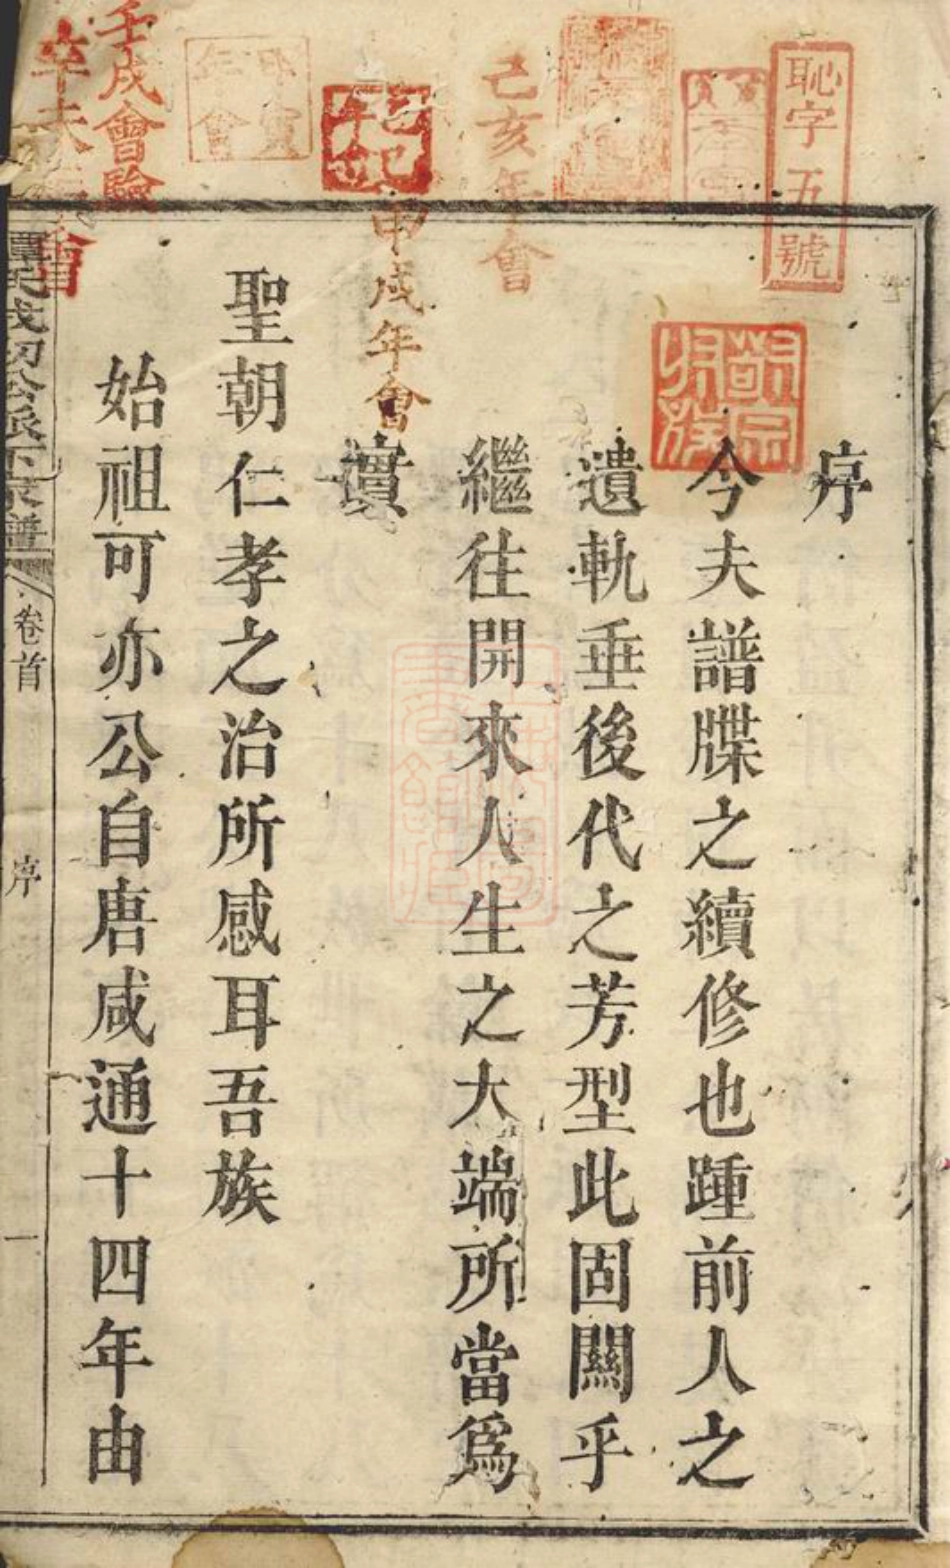 序
今夫譜牒之續修也踵前人之
遺軌垂後代之芳型此固關乎
繼往開來人生之大端所當爲
實
聖朝仁孝之治所感耳吾族
始祖可亦公自唐咸通十四年由
卷首
序
一
恥字五號
己亥年會
甲戌年會
壬戌會驗